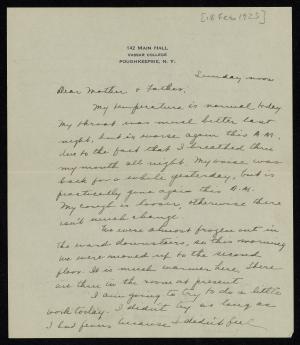 [18 Feb 1923]
142 MAIN HALL
VASSAR COLLEGE
POUGHKEEPSIE, N. Y.
Sunday noon
Dear Mother & Father,
My temperature is normal today.
My throat was much better last
night, but is worse again this A.M.
due to the fact that I breathed thru
my mouth all night. My voice was
back for a while yesterday, but is
practically gone again this A.M.
My cough is looser, otherwise there
isn't much change.
We were almost frozen out in
the ward downstairs, so this morning
we were moved up to the second
floor. It is much warmer here. There
are three in the room at present.
I am going to try to do a little
work today. I didn't try as long as
I had fever because I didn't feel